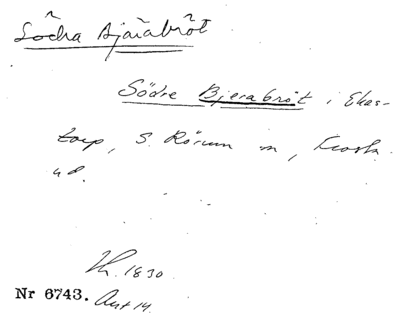 Södra Bjärabröt
Södre Bjerabröt i Ekas-
torp, S. Rörum m, Frosta
hd.
Th. 1830
Nr 6743. Ant 14.